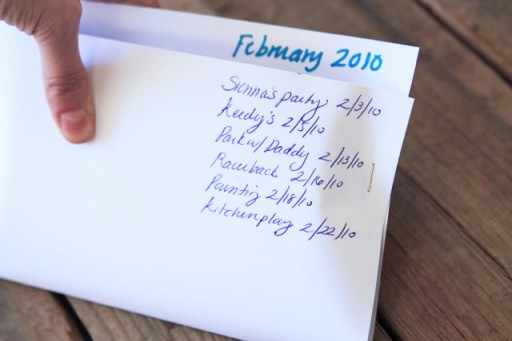 February 2010
Sienna's party 2/3/10
Keedy's 2/5/10
Park w/ Daddy 2/13/10
Racerback 2/16/10
Painting 2/18/10
Kitchen play 2/22/10